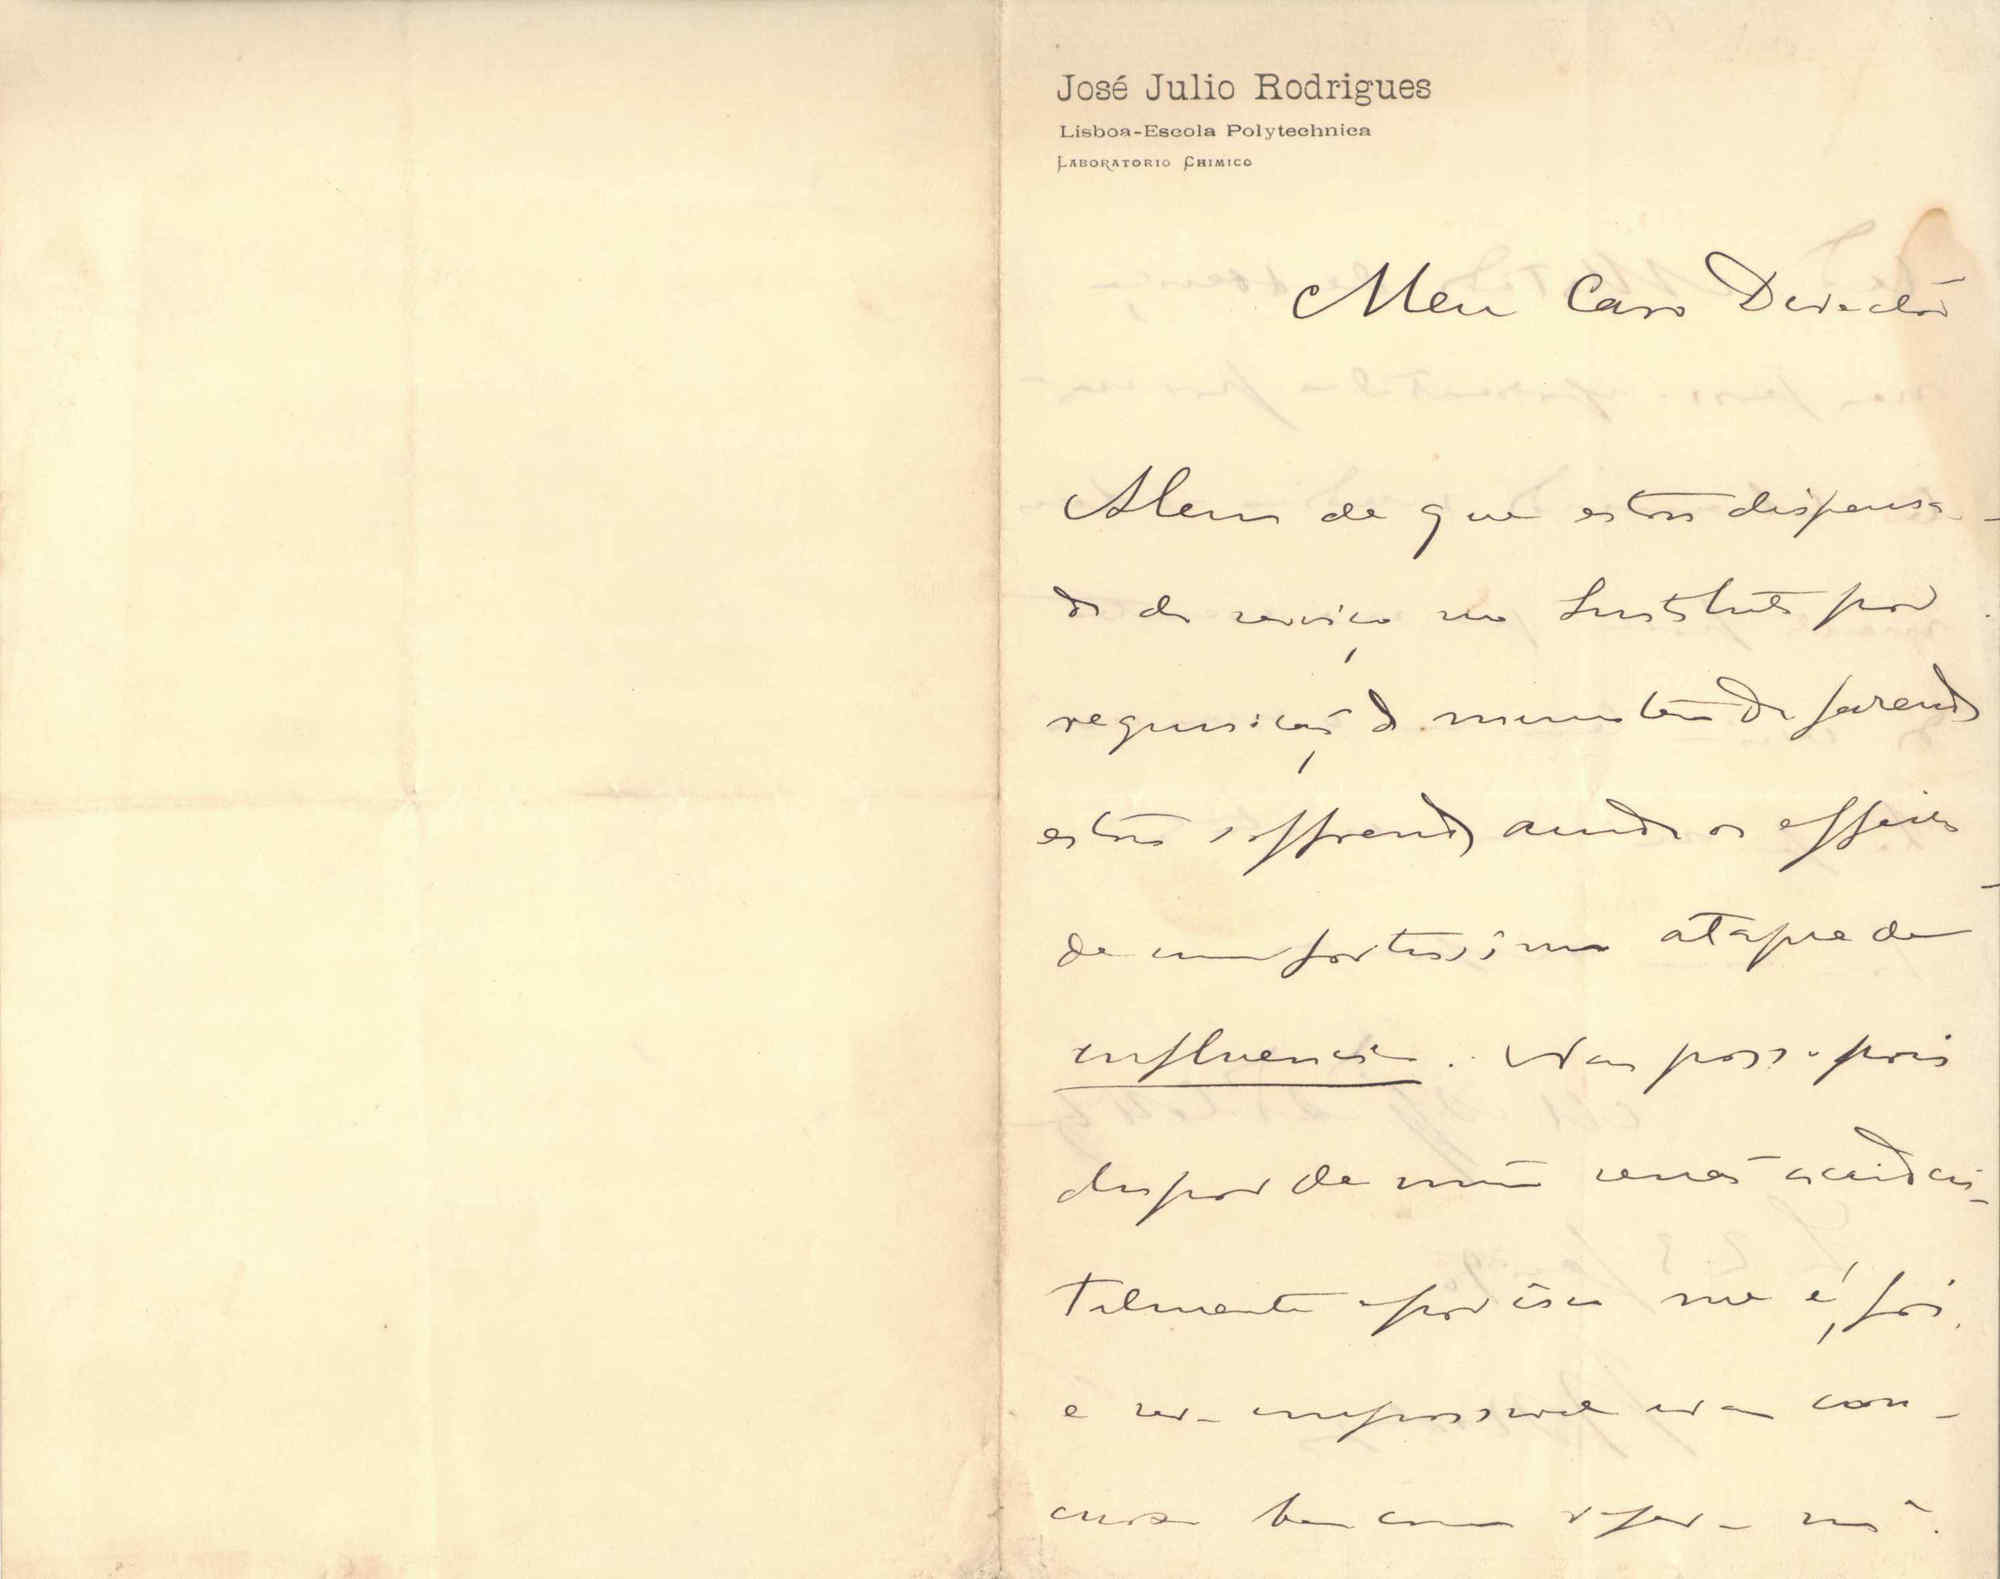 José Julio Rodrigues
Lisboa-Escola Polytechnica
LABORATORIO CHIMICO
Meu Caro Director
Alem de que estou dispensa-
do do serviço no Instituto por
requisição do ministerio da fazenda
estou soffrendo ainda os effeitos
de um fortissimo ataque de
influencia. Não posso pois
dispor de mim senão acciden-
talmente e por isso me é, foi,
e será impossivel ir a con-
curso bem como